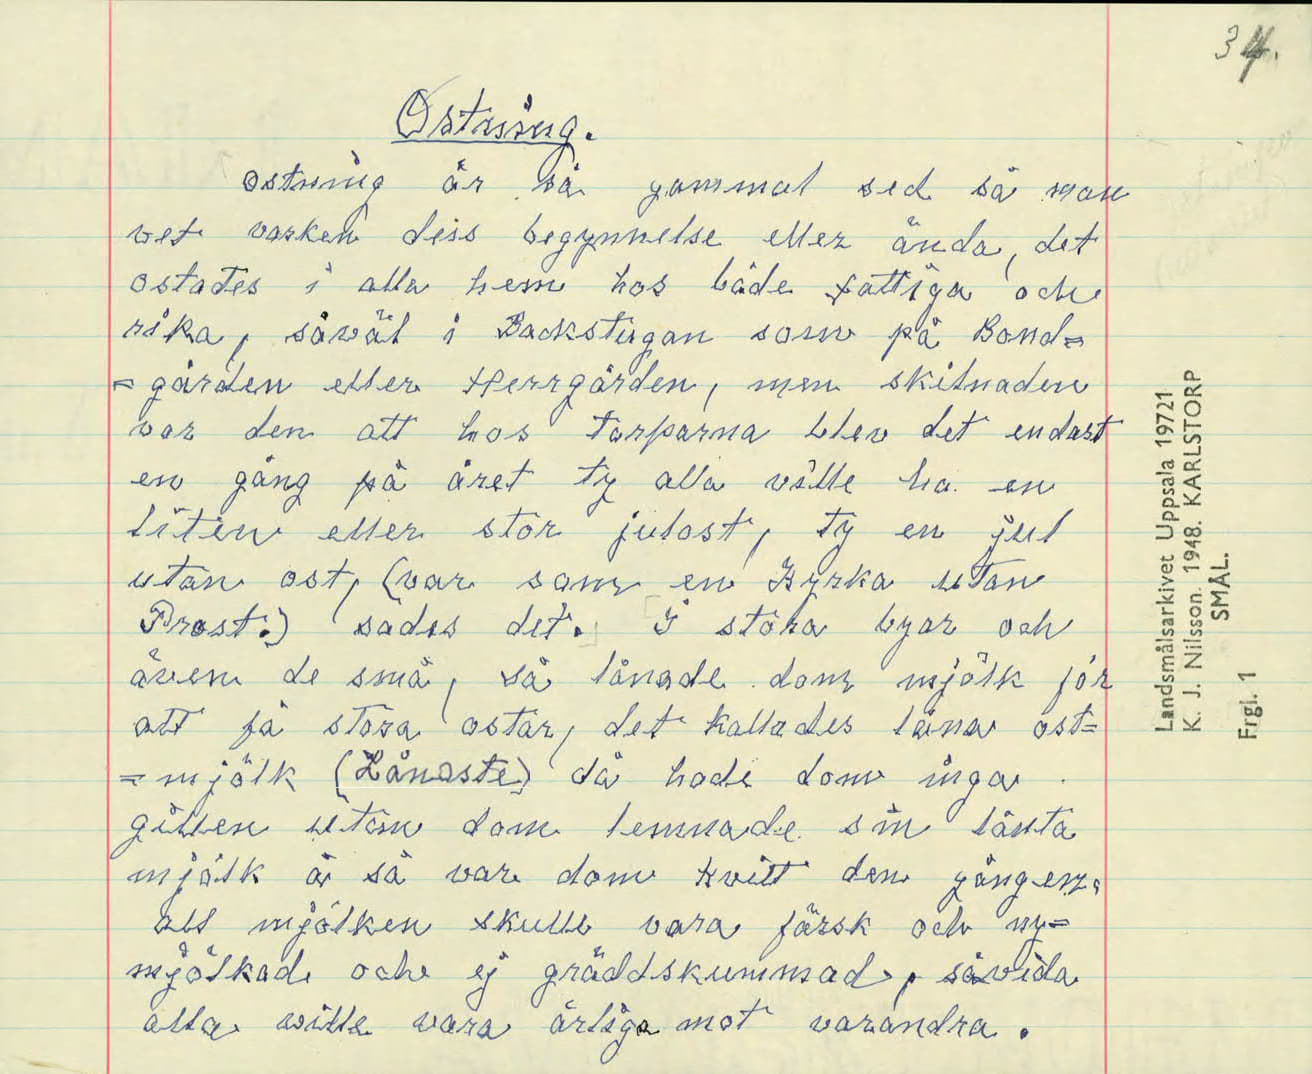 34.
Ostning.
Ostning är så gammal sed så man
vet varken dess begynnelse eller ända, det
ostades i alla hem hos både fattiga och
rika, såväl i Backstugan som på Bond=
=gården eller Herrgården, men skilnaden
var den att hos torparna blev det endast
en gång på året ty alla ville ha en
liten eller stor julost, ty en jul
utan ost, (var som en Kyrka utan
Prost.) sades det. I stora byar och
även de små, så lånade dom mjölk för
att få stora ostar, det kallades låna ost=
=mjölk (Lånaste) då hade dom inga
gillen utan dom lemnade sin lånta
mjölk å så var dom kvitt den gången.
all mjölken skulle vara färsk och ny=
mjölkad och ej gräddskummad, såvida
alla ville vara ärliga mot varandra.
Landsmålsarkivet Uppsala 19721
K. J. Nilsson. 1948. KARLSTORP
SMÅL.
Frgl. 1